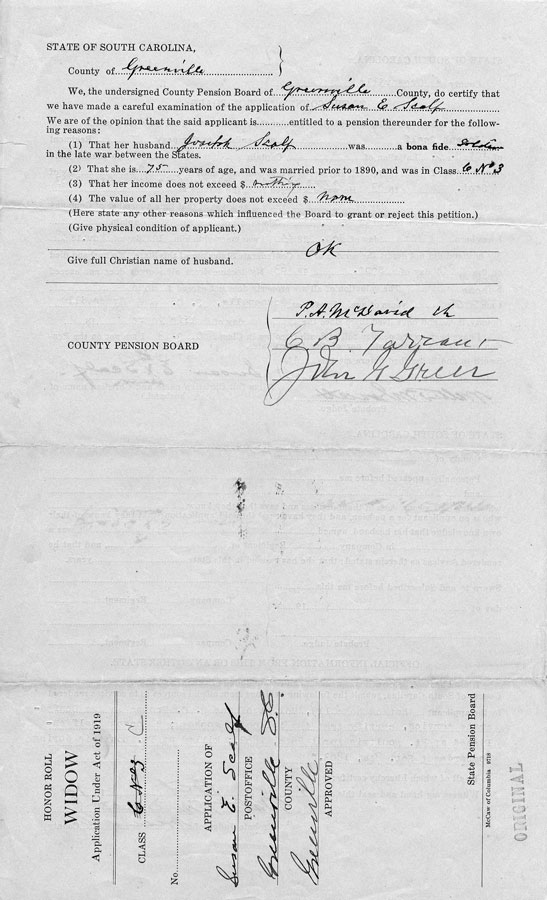 STATE OF SOUTH CAROLINA,
County of Greenville
We, the undersigned County Pension Board of Greenville County, do certify that
we have made a careful examination of the application of Susan E Scalf
We are of the opinion that the said applicant is entitled to a pension thereunder for the follow-
ing reasons:
(1) That her husband Joseph Scalf was a bona fide soldier
in the late war between the States.
(2) That she is 75 years of age, and was married prior to 1890, and was in Class C No 3
(3) That her income does not exceed $ nothing
(4) The value of all her property does not exceed $ none
(Here state any other reasons which influenced the Board to grant or reject this petition.)
(Give physical condition of applicant.)
OK
Give full Christian name of husband.
P. A. McDavid
COUNTY PENSION BOARD
C B Tarrant
John G Greer
HONOR ROLL
WIDOW
Application Under Act of 1919
CLASS C No 3 C
No.
APPLICATION OF
Susan E. Scalf
POSTOFFICE
Greenville S.C.
COUNTY
Greenville
APPROVED
State Pension Board
McCaw of Columbia 9718
ORIGINAL